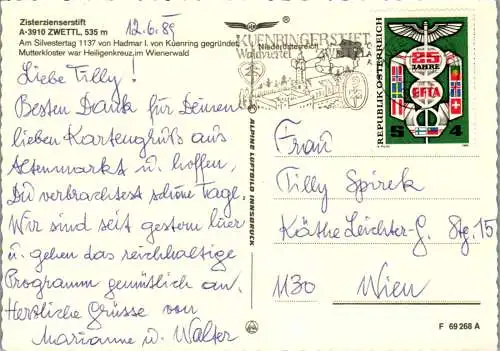 Zisterzienserstift
A-3910 ZWETTL, 535 m
12.6.89
Am Silvestertag 1137 von Hadmar I. von Kuenring gegründet.
Mutterkloster war Heiligenkreuz im Wienerwald
Liebe Tilly!
Besten Dank für Deinen
lieben Kartengruß aus
Altenmarkt u. hoffen,
Du verbrachtest schöne Tage.
Wir sind seit gestern hier
u. gehen das reichhaltige
Programm gemütlich an.
Herzliche Grüsse von
Marianne u. Walter
ALPINE LUFTBILD INNSBRUCK
KUENRINGERSTIFT
Niederösterreich
Waldviertel
REPUBLIK ÖSTERREICH
25
JAHRE
EFTA
S 4
Frau
Tilly Spirek
Käthe Leichter-G. Stg. 15
1130 Wien
F 69 268 A